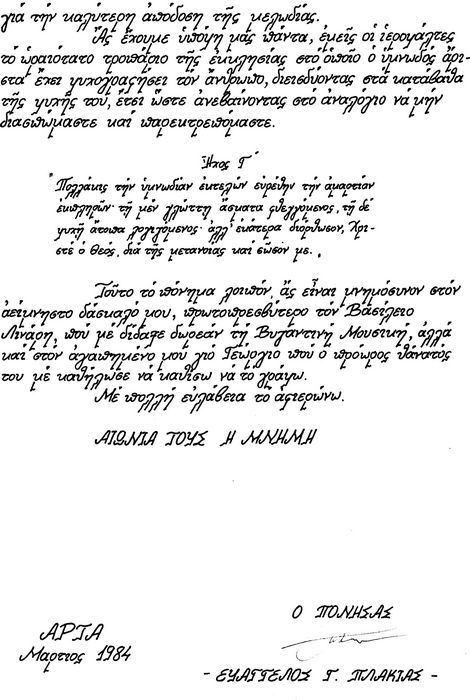 γιά τήν καλύτερη ἀπόδοση τῆς μελωδίας.
Ἄς ἔχουμε ὑπόψη μας πάντα, ἐμεῖς οἱ ἱεροψάλτες
τό ὡραιότατο τροπάριο τῆς ἐκκλησίας στό ὁποῖο ὁ ὑμνωδός ἄρι-
στα ἔχει ψυχογραφήσει τόν ἄνθρωπο, διεισδύοντας στά κατάβαθα
τῆς ψυχῆς τού, ἔτσι ὥστε ἀνεβαίνοντας στό ἀναλόγιο νά μήν
διασπώμαστε καί παρεκτρεπόμαστε.
Ἦχος Γ΄
"Πολλάκις τήν ὑμνωδίαν ἐκτελῶν εὑρέθην τήν ἁμαρτίαν
ἐκπληρῶν· τῇ μέν γλώττῃ ἄσματα φθεγγόμενος, τῇ δέ
ψυχῇ ἄτοπα λογιζόμενος· ἀλλ' ἑκάτερα διόρθωσον, Χρι-
στέ ὁ Θεός, διά τῆς μετανοίας καί σῶσον με.,
Τοῦτο τό πόνημα λοιπόν, ἄς εἶναι μνημόσυνον στόν
ἀείμνηστο δάσκαλό μου, πρωτοπρεσβύτερο τόν Βασίλειο
Λινάρη, πού μέ δίδαξε δωρεάν τή Βυζαντινή Μουσική, ἀλλά
καί στόν ἀγαπημένο μού γιό Γεώργιο πού ὁ πρόωρος θάνατος
του μέ καθήλωσε νά καθίσω νά τό γράψω.
Μέ πολλή εὐλάβεια τό ἀφιερώνω.
ΑΙΩΝΙΑ ΤΟΥΣ Η ΜΝΗΜΗ
Ο ΠΟΝΗΣΑΣ
ΑΡΤΑ
Μαρτιος 1984
- ΕΥΑΓΓΕΛΟΣ Γ. ΠΛΑΚΙΑΣ -